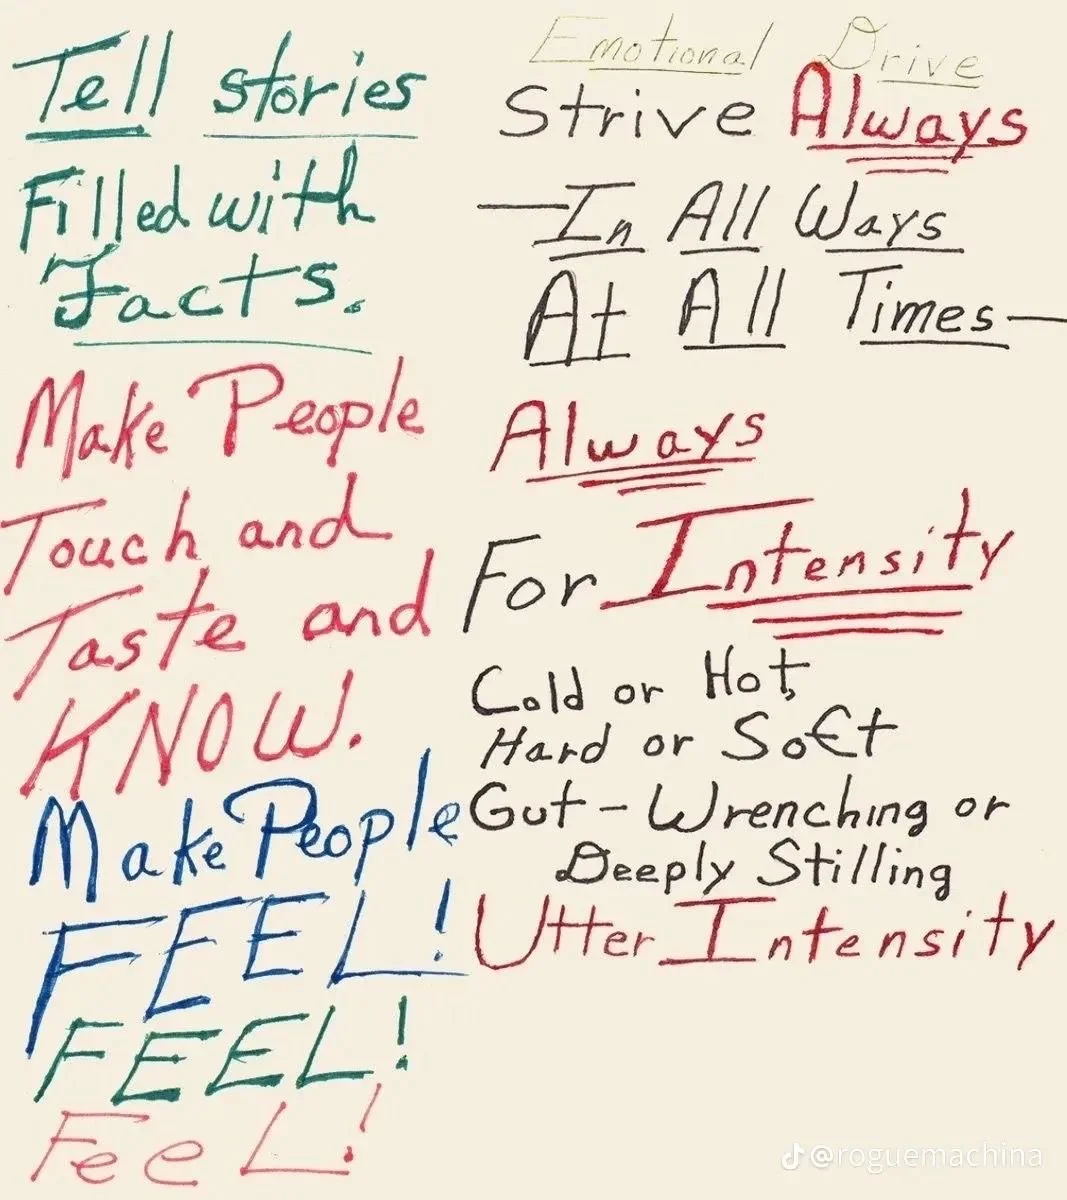 Tell stories
Filled with
Facts.
Make People
Touch and
Taste and
KNOW.
Make People
FEEL!
FEEL!
FeeL!
Emotional Drive
Strive Always
—In All Ways
At All Times—
Always
For Intensity
Cold or Hot,
Hard or Soft
Gut-Wrenching or
Deeply Stilling
Utter Intensity
@roguemachina